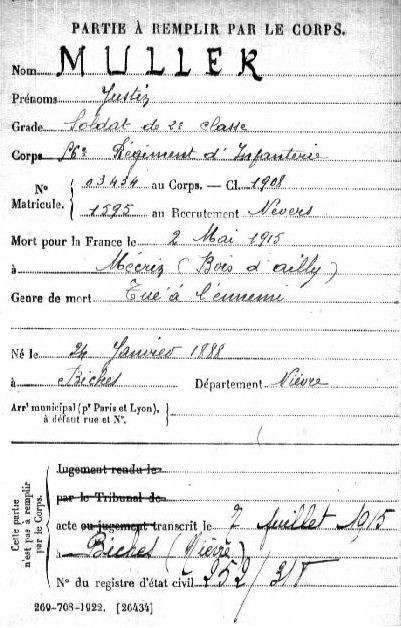 PARTIE À REMPLIR PAR LE CORPS.
Nom MULLER
Prénoms Justin
Grade Soldat de 2e classe
Corps 56e Régiment d'Infanterie
N° Matricule. { 03434 au Corps. — Cl. 1908
1595 au Recrutement Nevers
Mort pour la France le 2 Mai 1915
à (Bois d'ailly)
Genre de mort Tué à l'ennemi
Né le 24 Janvier 1888
à Biches Département Nièvre
Arrt municipal (pr Paris et Lyon), à défaut rue et N°. {
Cette partie n'est pas à remplir par le Corps.
Jugement rendu le
par le Tribunal de
acte ou jugement transcrit le 7 Juillet 1915
à Biches (Nièvre)
N° du registre d'état civil 252/318
269-708-1922. [26434]